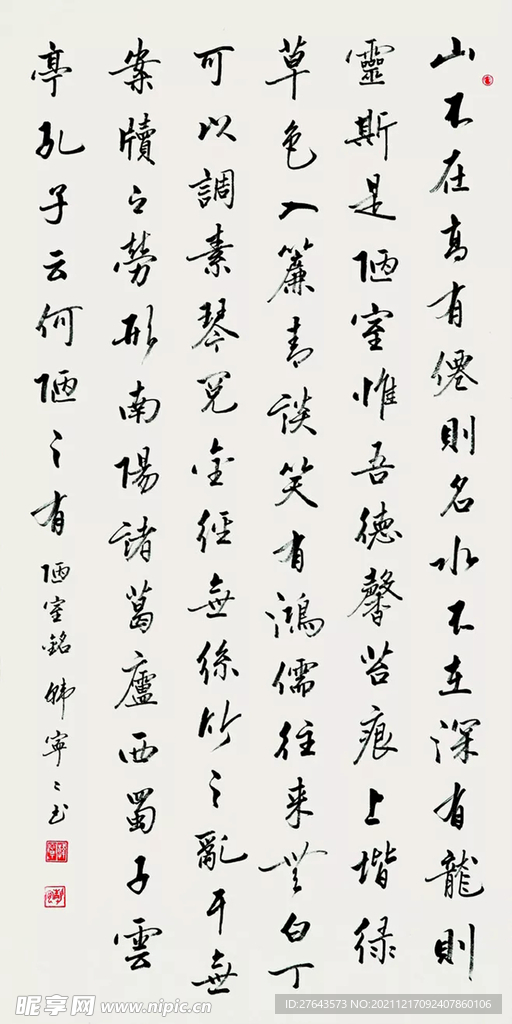 山不在高有僊則名水不在深有龍則
靈斯是陋室惟吾德馨苔痕上堦緑
草色入簾青談笑有鴻儒往來無白丁
可以調素琴閱金經無絲竹之亂耳無
案牘之勞形南陽諸葛廬西蜀子雲
亭孔子云何陋之有 陋室銘 韩寧〻书
昵享网 www.nipic.cn
ID:27643573 NO:20211217092407860106